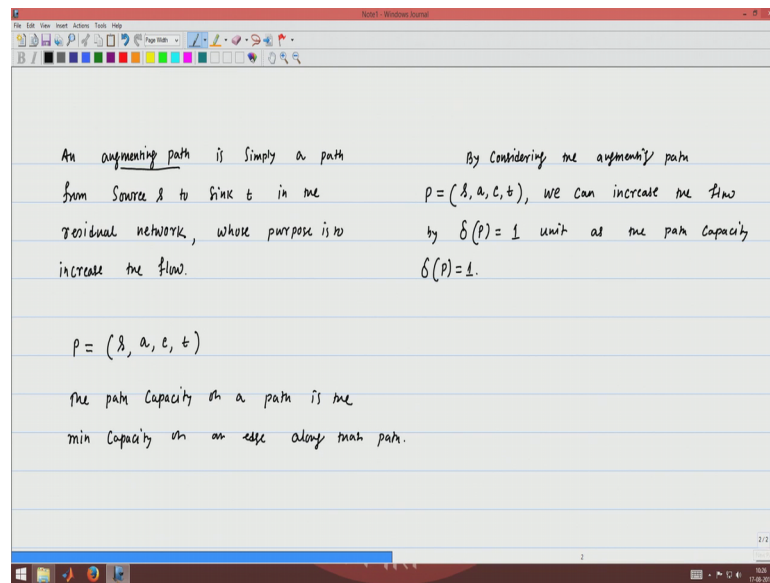 Note1 - Windows Journal
File Edit View Insert Actions Tools Help
Page Width
B I
An augmenting path is simply a path
from Source s to Sink t in the
residual network, whose purpose is to
increase the flow.
P = (s, a, c, t)
The path Capacity on a path is the
min Capacity on an edge along that path.
By Considering the augmenting path
P = (s, a, c, t), we can increase the flow
by δ(P) = 1 unit as the path capacity
δ(P) = 1.
2/2
2
10:26